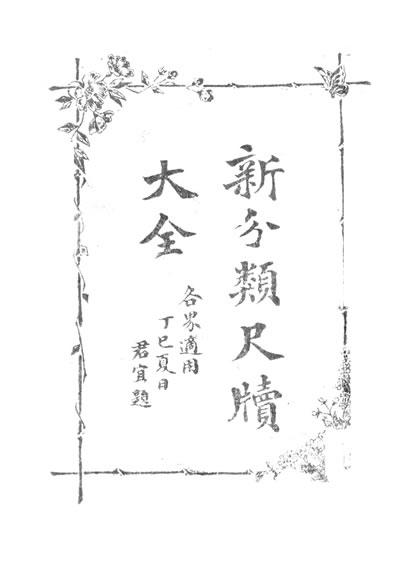 新分類尺牘
大全
各界適用
丁巳夏日
君宜題